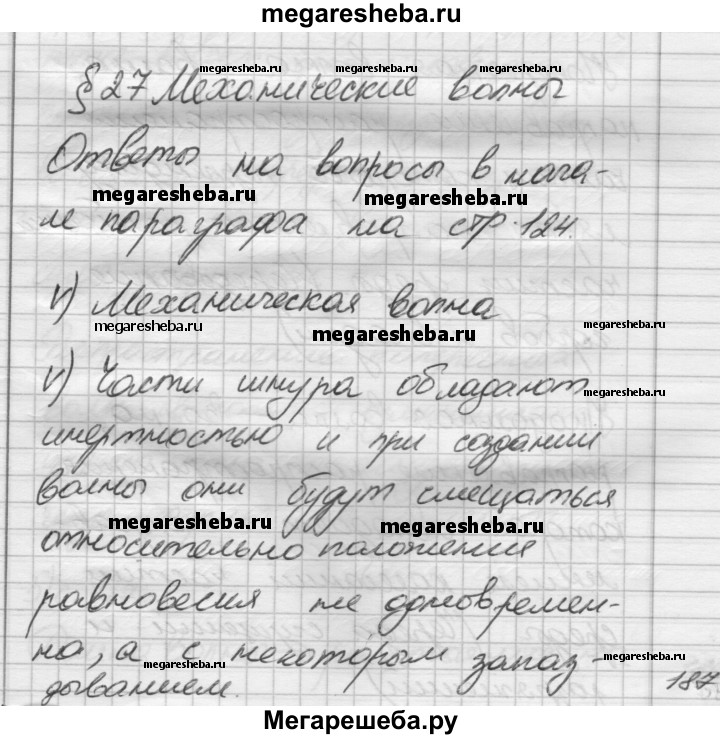 megaresheba.ru
§ 27 Механические волны
megaresheba.ru megaresheba.ru megaresheba.ru
Ответы на вопросы в нача-
megaresheba.ru megaresheba.ru
ле параграфа на стр. 124.
v) Механическая волна
megaresheba.ru megaresheba.ru megaresheba.ru
v) Части шнура обладают
megaresheba.ru
инертностью и при создании
волны они будут смещаться
megaresheba.ru megaresheba.ru
относительно положения
равновесия не одновремен-
но, а с некоторым запаз-
megaresheba.ru megaresheba.ru megaresheba.ru
дыванием.
187
Мегарешеба.ру